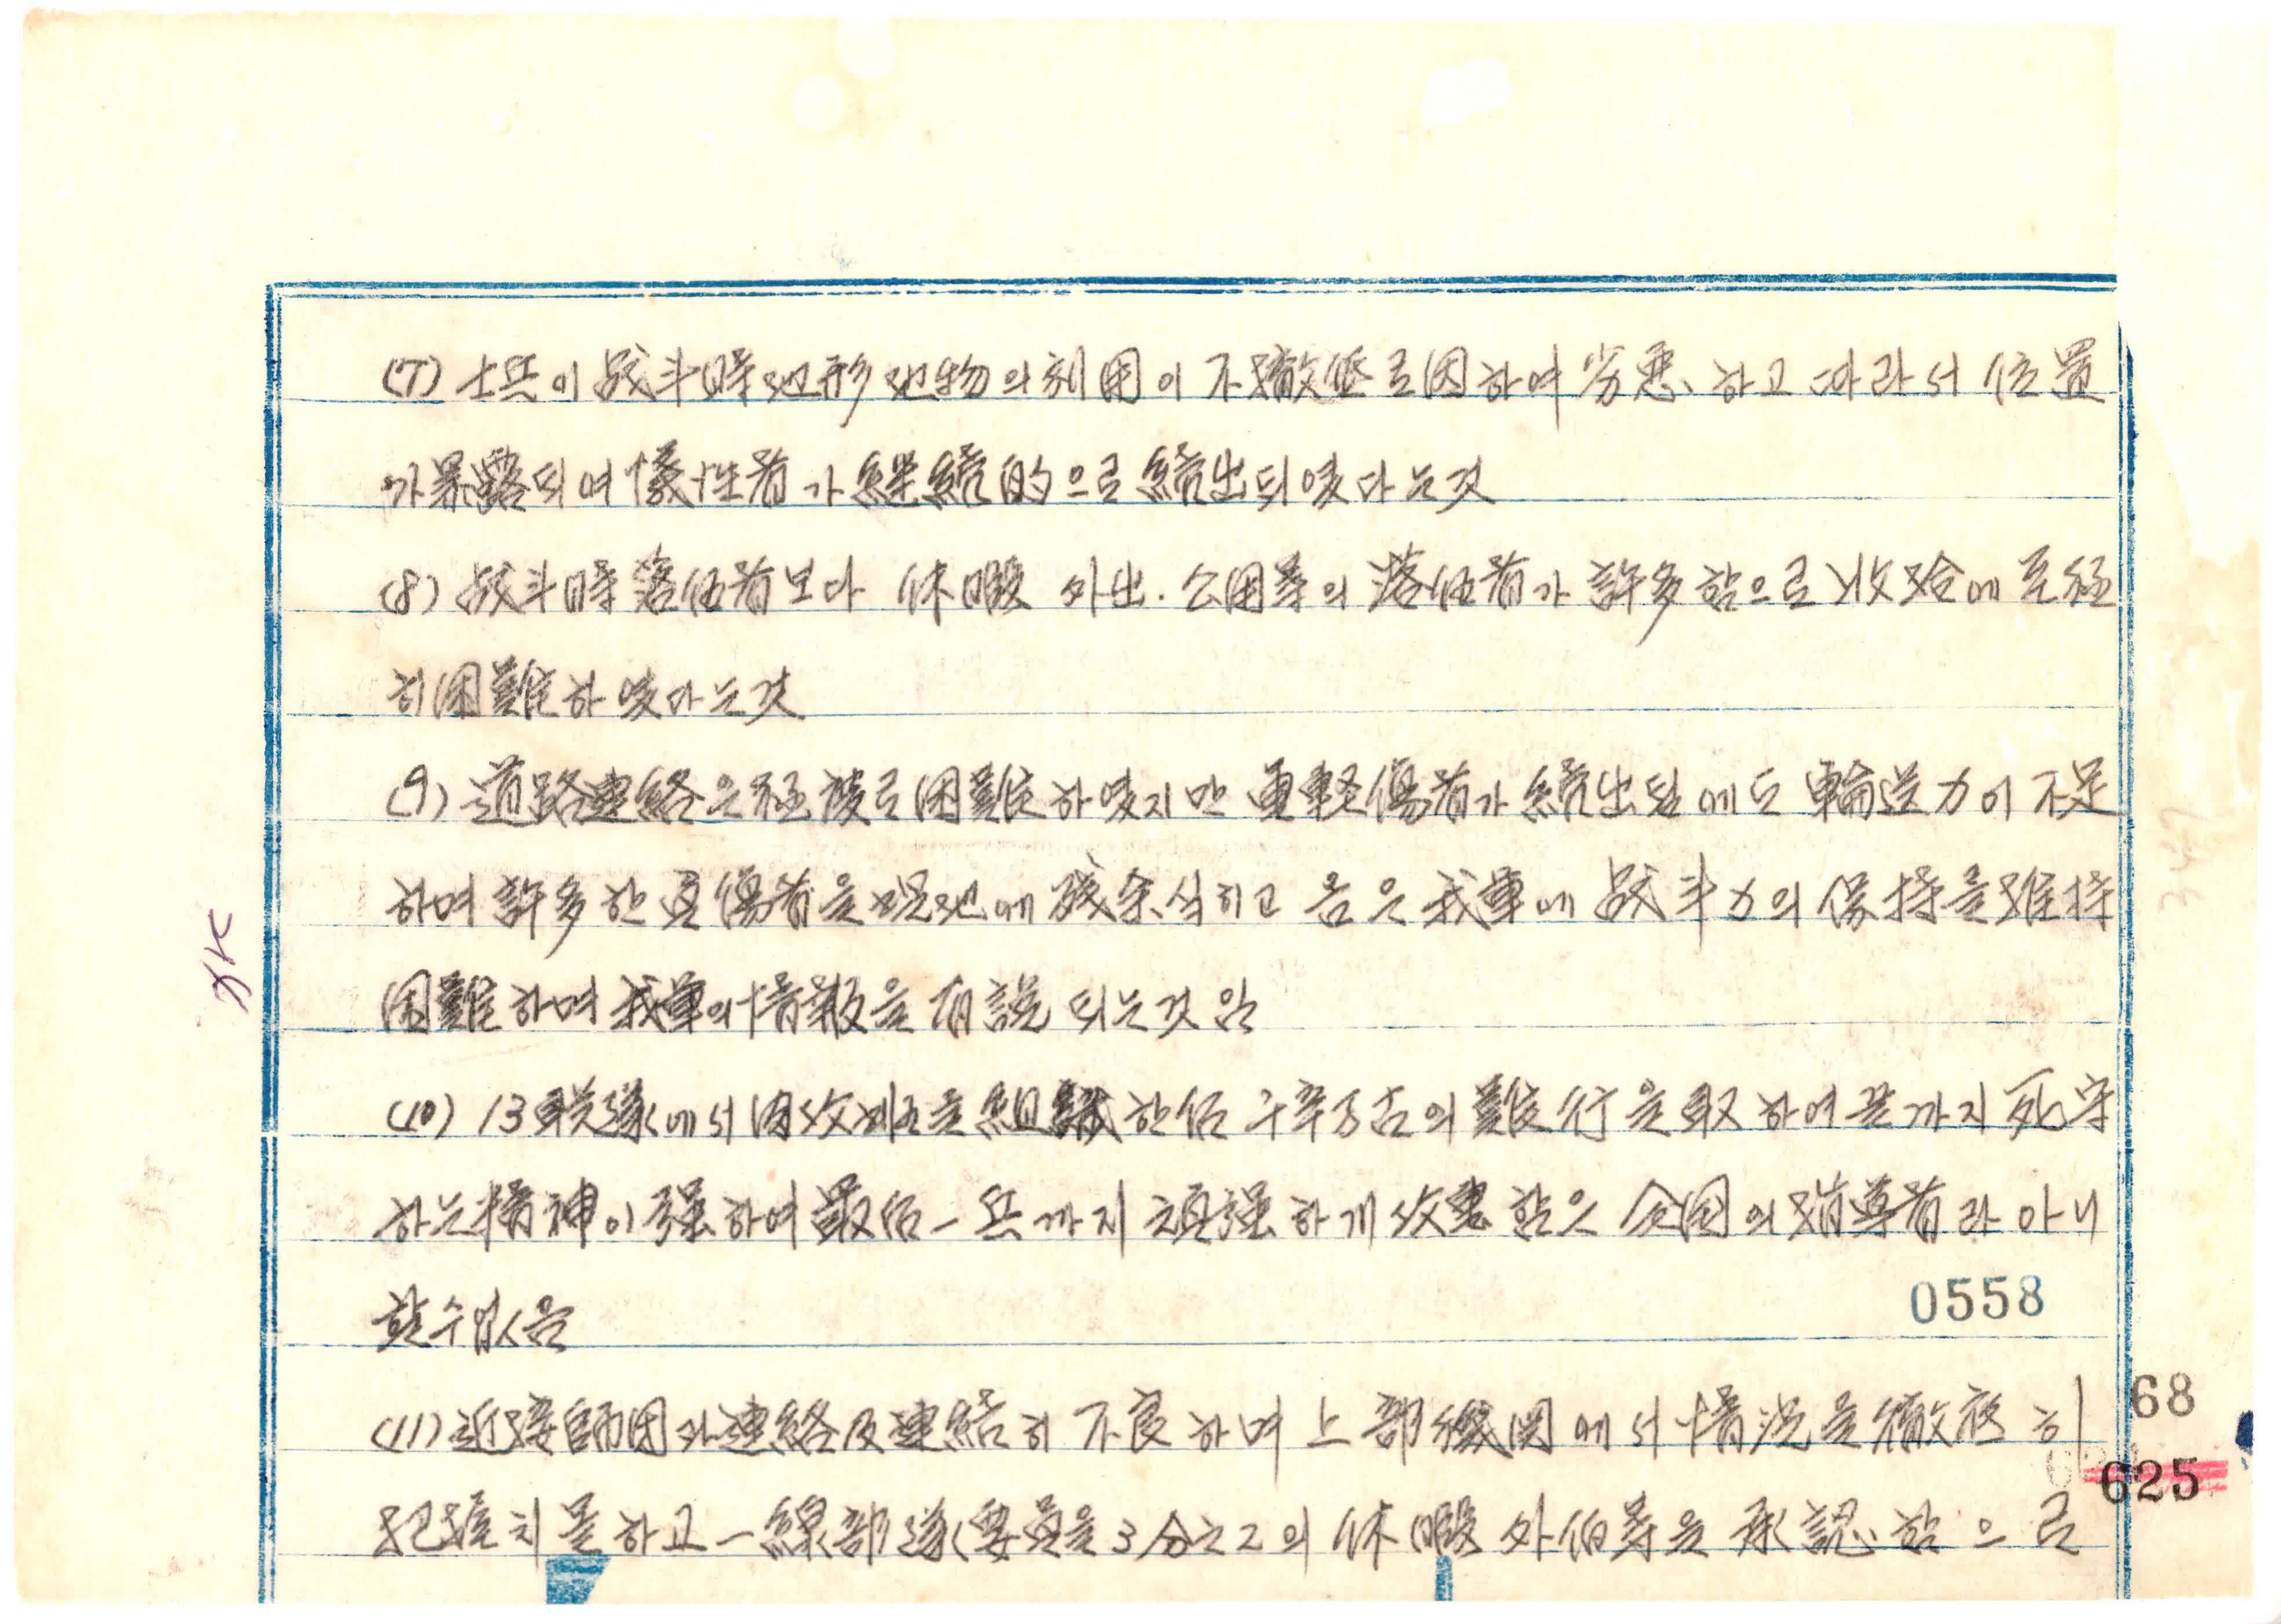 (7) 士兵이 战斗時 地形地物의 利用이 不撤底로因하여 劣悪、하고 따라서 位置
가暴露되여 犠牲者가 継続的으로 続出되였다는것
(8) 战斗時 落伍者보다 休暇 外出. 公用等의 落伍者가 許多함으로 收拾에 至極
히困難하였다는것
(9) 道路連絡은極度로困難하였지만 重軽傷者가 続出됨에도 輸送力이 不足
하며 許多한 重傷者를 現地에 残余、식히고 음은 我軍에 战斗力의 保持를維持
困難하며 我軍의情報을 有説되는것임
(10) 13联隊에서 肉攻 를 組織한后 의 難行을 取하여 끝까지 死守
하는精神이 强하여 最后一兵까지 頑强하게 攻 함은 全国의 指導者라 아니
할수없음
(11) 近接師団과連絡及連結히 不良하며 上部機関에서 情況을 徹底히
把握치 못하고 一線部隊 要員을 3分之2의 休暇 外伯等을 承認함으로
0558
68
625